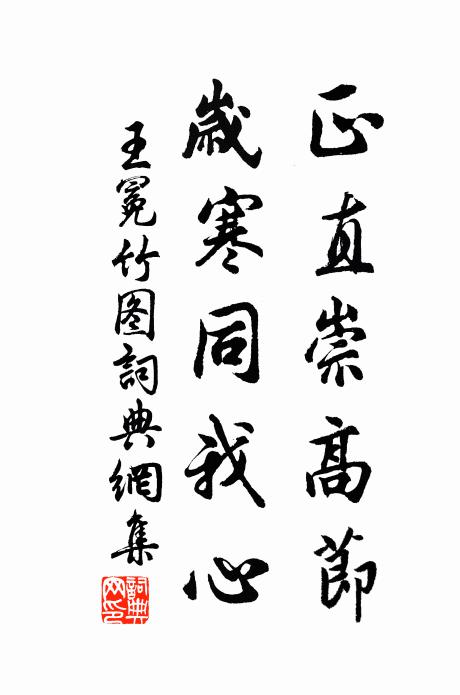 正直崇高節
歲寒同我心
王冕竹图詞典網集
詞典网印